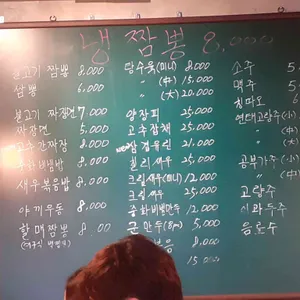 냉 짬뽕 8,000
불고기 짬뽕 8,000
짬뽕 6,000
불고기 짜장면 7,000
짜장면 5,000
고추 간짜장 8,000
볶음밥 8,000
새우볶음밥 8,000
야끼우동 8,000
할매짬뽕 8,000
탕수육(미니) 8,000
〃 (中) 15,000
〃 (大) 20,000
양장피 25,000
고추잡채 25,000
21,000
칠리새우 25,000
크림새우(미니) 12,000
크림새우 25,000
중화비빔만두 12,000
군만두(8개) 5,000
8,000
15,000
소주 5
맥주 5
칭따오 6
연태고량주(小)
〃 (中)
〃 (大)
공부가주(小)
〃 (中)
고량주
이과두주
음료수